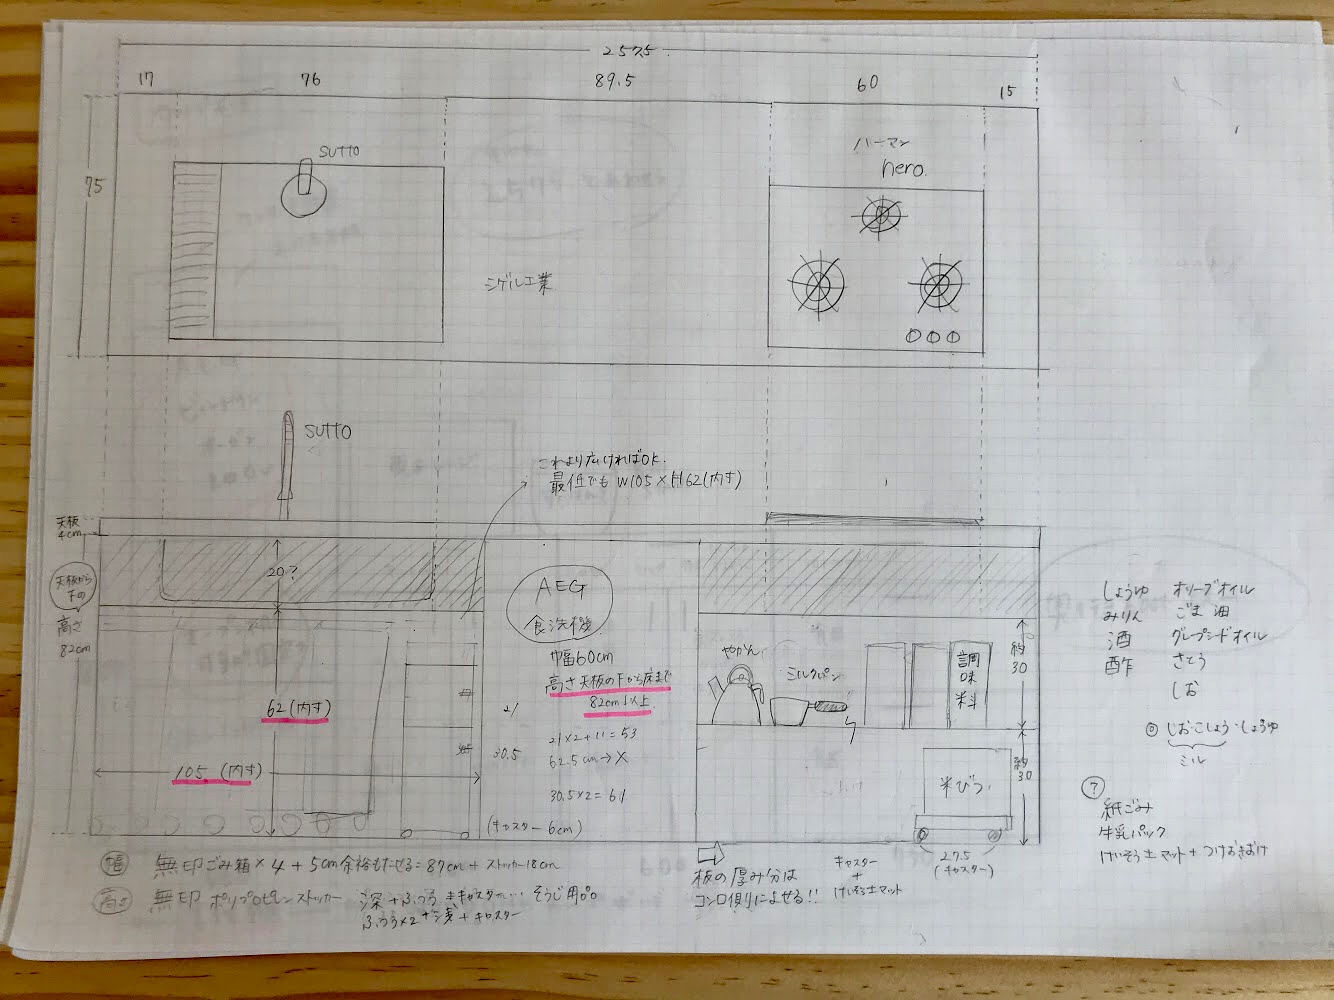 257.5
17 76 89.5 60 15
75
SUTTO
ハーマン
nero.
シゲル工業
SUTTO
これより広ければOK.
最低でも W105×H62(内寸)
天板
4cm
20?
天板から
下の
高さ
82cm
AEG
食洗機
幅60cm
高さ天板の下から床まで
82cm以上
21
21×2+11=53
30.5
62.5cm→×
30.5×2=61
(キャスター6cm)
62(内寸)
105(内寸)
やかん
ミルクパン
調味料
約30
米びつ
約30
27.5
(キャスター)
しょうゆ オリーブオイル
みりん ごま油
酒 グレープシードオイル
酢 さとう
しお
◎ しお・こしょう・しょうゆ
ミル
?
紙ごみ
牛乳パック
けいそう土マット+つけおきおけ
幅 無印ごみ箱×4+5cm余裕もたせる=87cm+ストッカー18cm
高さ 無印 ポリプロピレンストッカー 深+ふつう+キャスター… そうじ用品
ふつう×2+浅+キャスター
板の厚み分は
コンロ側によせる!!
キャスター
+
けいそう土マット